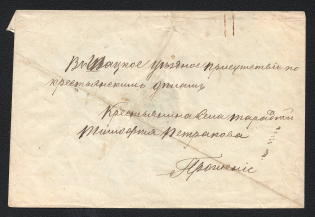 Въ Шацкое уѣздное присутствіе по
крестьянскимъ дѣламъ
Крестьянина села
Тимофея Петракова
Прошеніе